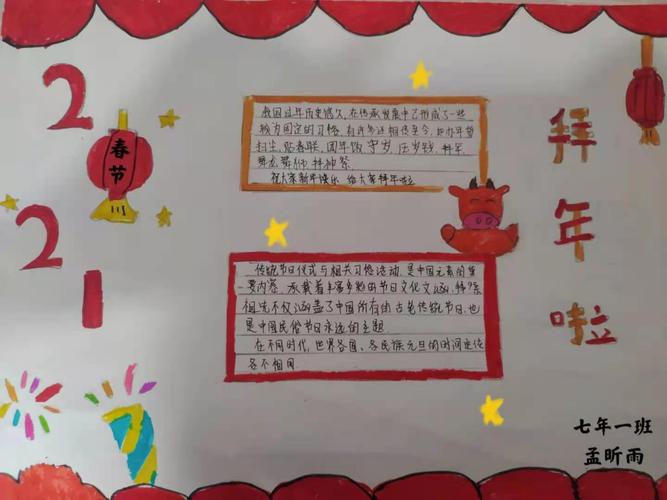 2
春节
2
1
我国过年历史悠久，在传承发展中已形成了一些
较为固定的习俗，有许多还相传至今，如办年货
扫尘，贴春联，团年饭，守岁，压岁钱，拜年，
舞龙舞狮，拜神祭
祝大家新年快乐 给大家拜年啦
传统节日仪式与相关习俗活动，是中国元素的重
要内容，承载着丰富多彩的节日文化文涵，拜祭
祖先不仅涵盖了中国所有的古老传统节日，也
是中国民俗节日永远的主题
在不同时代，世界各国、各民族元旦的时间定
各不相同
拜年啦
七年一班
孟昕雨